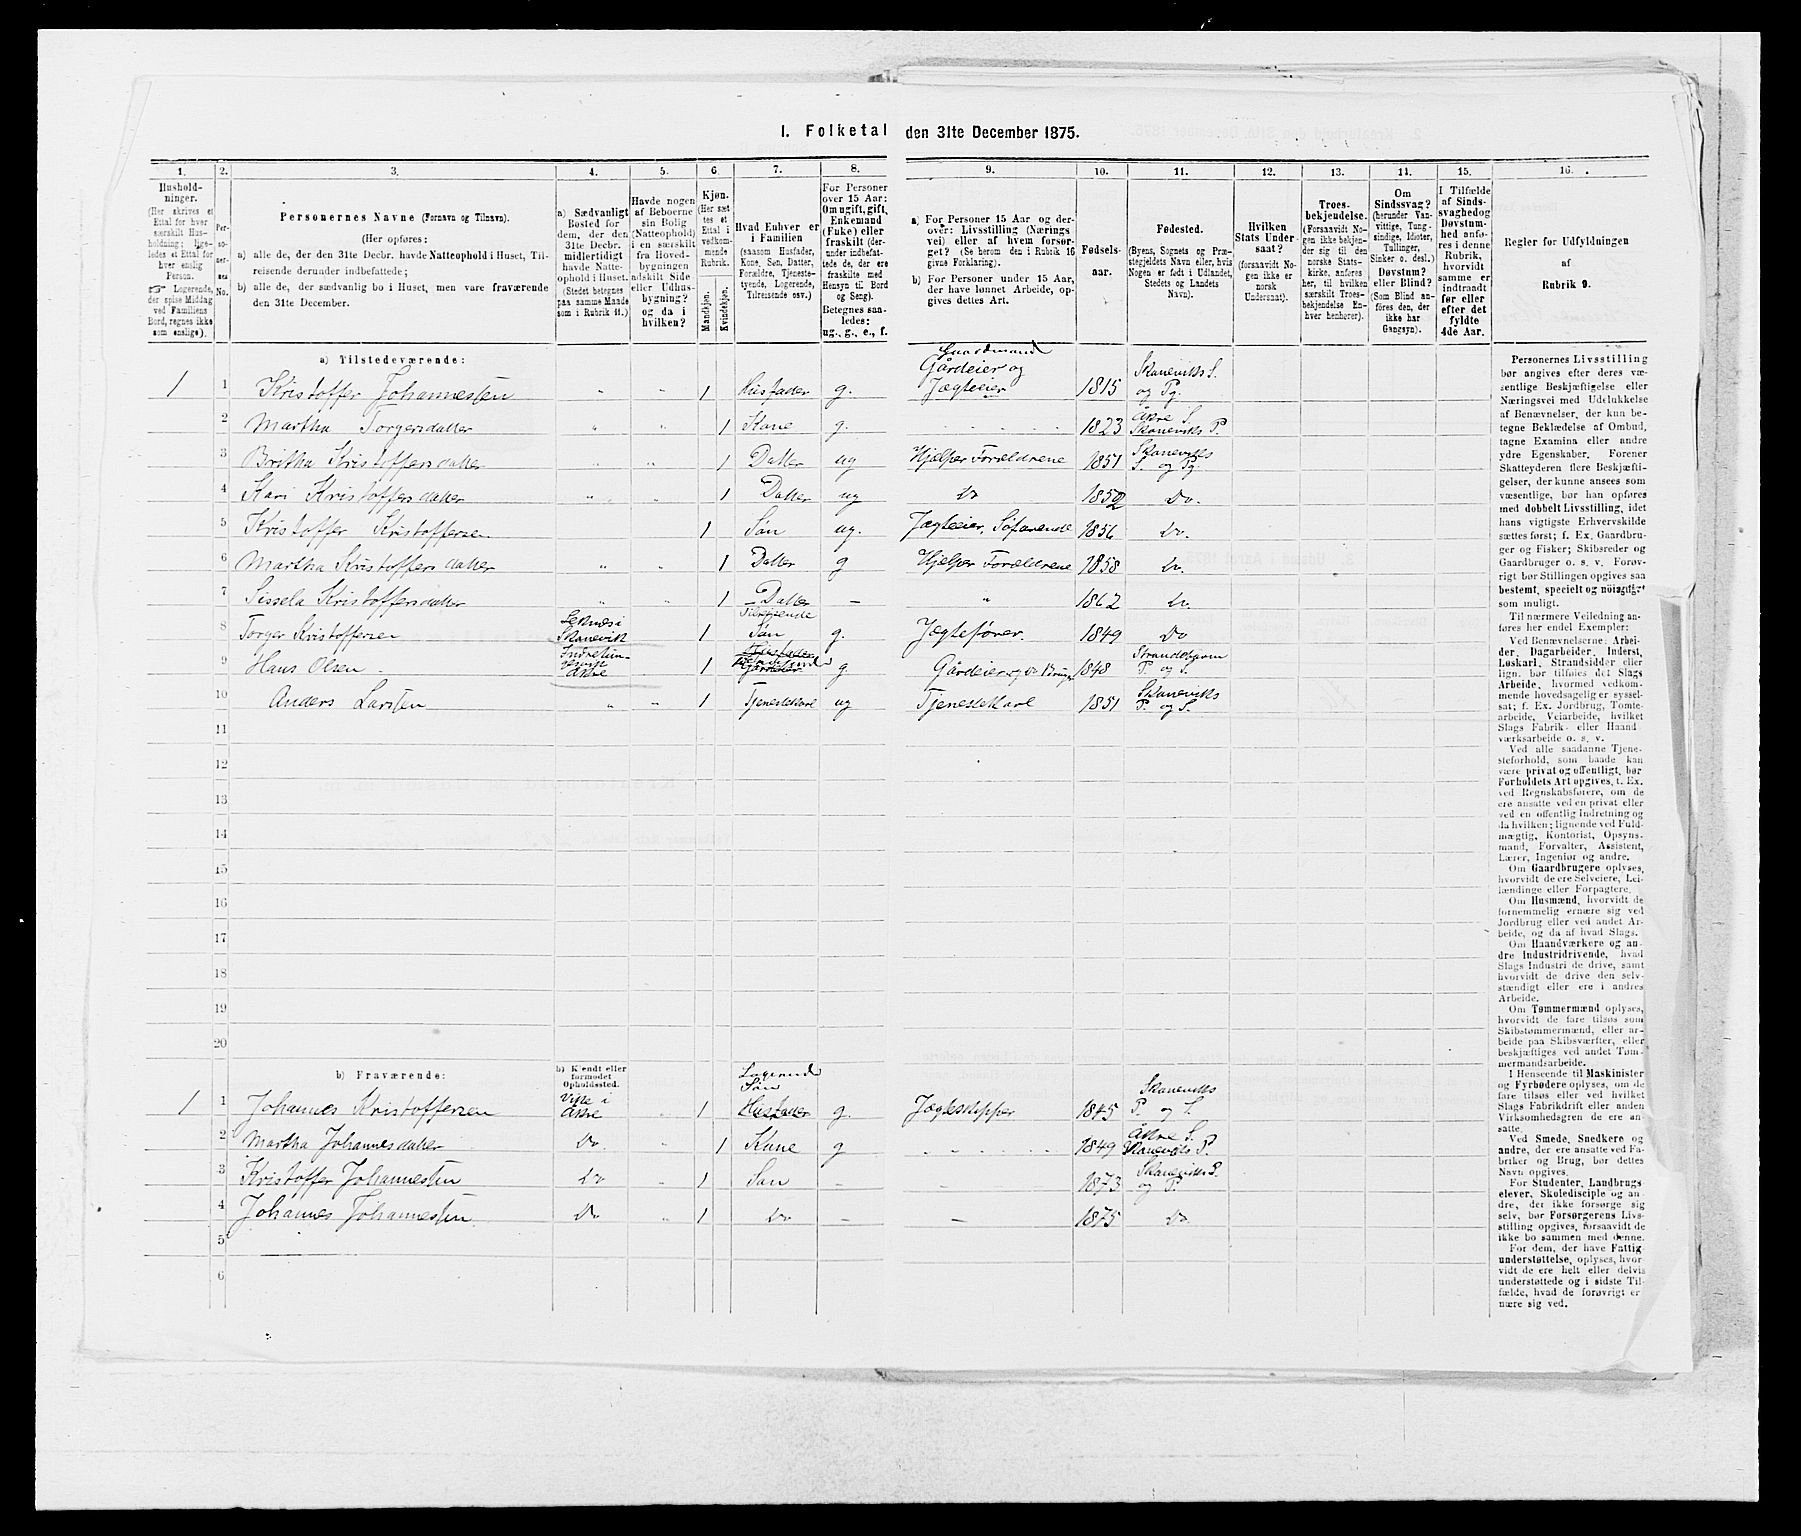 1. Folketal den 31te December 1875.
1. 2. 3. 4. 5. 6. 7. 8. 9. 10. 11. 12. 13. 14. 15. 16.
Hushold-
ninger.
(Her skrives et
Ettal for hver
særskilt Hus-
holdning; lige-
ledes et Ettal for
hver enslig
Person.
☞ Logerende,
der spise Middag
ved Familiens
Bord, regnes ikke
som enslige).
Per-
so-
ner-
nes
No.
Personernes Navne (Fornavn og Tilnavn).
(Her opføres:
a) alle de, der den 31te Decbr. havde Natteophold i Huset, Til-
reisende derunder indbefattede;
b) alle de, der sædvanlig bo i Huset, men vare fraværende
den 31te December.
a) Sædvanligt
Bosted for
dem, der den
31te Decbr.
midlertidigt
havde Natte-
ophold i Huset.
(Stedet betegnes
paa samme Maade
som i Rubrik 11.)
Havde nogen
af Beboerne
sin Bolig
(Natteophold)
i en særskilt
fra Hoved-
bygningen
adskilt Side
eller Udhus-
bygning?
og da i
hvilken?
Kjøn.
(Her sæt-
tes et
Ettal i
vedkom-
mende
Rubrik.
Mandkjøn.
Kvindekjøn.
Hvad Enhver er
i Familien
(saasom Husfader,
Kone, Søn, Datter,
Forældre, Tjeneste-
tyende, Logerende,
Tilreisende osv.)
For Personer
over 15 Aar:
Om ugift, gift,
Enkemand
(Enke) eller
fraskilt (der-
under indbefat-
tede de, der ere
fraskilte med
Hensyn til Bord
og Seng).
Betegnes saa-
ledes:
ug., g., e., f.
a) For Personer 15 Aar og der-
over: Livsstilling (Nærings-
vei) eller af hvem forsør-
get? (Se herom den i Rubrik 16
givne Forklaring).
b) For Personer under 15 Aar,
der have lønnet Arbeide, op-
gives dettes Art.
Fødsels-
aar.
Fødested.
(Byens, Sognets og Præ-
stegjeldets Navn eller, hvis
Nogen er født i Udlandet,
Stedets og Landets
Navn).
Hvilken
Stats Under-
saat?
(forsaavidt No-
gen ikke er
norsk
Undersaat).
Troes-
bekjendelse.
(Forsaavidt No-
gen ikke bekjen-
der sig til den
norske Stats-
kirke, anføres
her, til hvilken
særskilt Troes-
bekjendelse En-
hver henhører).
Om
Sindssvag?
(herunder Van-
vittige, Tung-
sindige, Idioter,
Tullinger,
Sinker o. desl.)
Døvstum?
eller Blind?
(Som Blind an-
føres den, der
ikke har
Gangsyn).
I Tilfælde
af Sinds-
svaghed og
Døvstum-
hed anfø-
res i denne
Rubrik,
hvorvidt
samme er
indtraadt
før eller
efter det
fyldte
4de Aar.
Regler for Udfyldningen
af
Rubrik 9.
a) Tilstedeværende:
1 1 Kristoffer Johannesten " " 1 Husfader g. Gaardmand Gårdeier og Jægteeier 1815 Skaneviks S. og Pg.
2 Martha Torgersdatter " " 1 Kone g. 1823 Åkre S. Skaneviks P.
3 Britha Kristoffersdatter " " 1 Datter ug Hjælper Forældrene 1851 Skaneviks S. og Pg.
4 Kari Kristoffersdatter " " 1 Datter ug Do 1852 Do.
5 Kristoffer Kristoffersen 1 Søn ug. Jægteeier, Søfarende 1856 Do.
6 Martha Kristoffersdatter " " 1 Datter g Hjelper Forældrene 1858 Do.
7 Sissela Kristoffersdatter " " 1 Datter — " 1862 Do.
8 Torger Kristoffersen Skanevik 1 Søn g. Jægtefører. 1849 Do
9 Hans Olsen Åkre 1 g Gårdeier og 1848 Strandebarm P. og S.
10 Anders Larsten " " 1 Tjenestekarl ug Tjenestekarl 1851 Skaneviks P. og S.
11
12
13
14
15
16
17
18
19
20
b) Fraværende:
b) Kjendt eller
formodet
Opholdssted.
1 1 Johannes Kristoffersen Vike i Åkre " 1 Logerende Søn Husfader g. Jægteskipper 1845 Skaneviks P. og S.
2 Martha Johannesdatter Do. " 1 Kone g 1849 Åkre S. Skaneviks P.
3 Kristoffer Johannesten Do " 1 Søn — — 1873 Skaneviks S. og P.
4 Johannes Johannesten Do " 1 Do — — 1875 Do
5
6
Personernes Livsstilling
bør angives efter deres væ-
sentlige Beskjæftigelse eller
Næringsvei med Udelukkelse
af Benævnelser, der kun be-
tegne Beklædelse af Ombud,
tagne Examina eller andre
ydre Egenskaber. Forener
Skatteyderen flere Beskjæfti-
gelser, der kunne ansees som
væsentlige, bør han opføres
med dobbelt Livsstilling, idet
hans vigtigste Erhvervskilde
sættes først; f. Ex. Gaardbru-
ger og Fisker; Skibsreder og
Gaardbruger o. s. v. Forøv-
rigt bør Stillingen opgives saa
bestemt, specielt og nöiagtigt
som muligt.
Til nærmere Veiledning an-
føres her endel Exempler:
Ved Benævnelserne: Arbei-
der, Dagarbeider, Inderst,
Løskarl, Strandsidder eller
lign. bør tilføies det Slags
Arbeide, hvormed vedkom-
mende hovedsagelig er syssel-
sat; f. Ex. Jordbrug, Tomte-
arbeide, Veiarbeide, hvilket
Slags Fabrik- eller Haand-
værksarbeide o. s. v.
Ved alle saadanne Tjene-
steforhold, som baade kan
være privat og offentligt, bør
Forholdets Art opgives, t. Ex.
ved Regnskabsførere, om de
ere ansatte ved en privat eller
ved en offentlig Indretning og
da hvilken; lignende ved Fuld-
mægtig, Kontorist, Opsyns-
mand, Forvalter, Assistent,
Lærer, Ingeniør og andre.
Om Gaardbrugere oplyses,
hvorvidt de ere Selveiere, Lei-
lændinge eller Forpagtere.
Om Husmænd, hvorvidt de
fornemmelig ernære sig ved
Jordbrug eller ved andet Ar-
beide, og da af hvad Slags.
Om Haandværkere og an-
dre Industridrivende, hvad
Slags Industri de drive, samt
hvorvidt de drive den selv-
stændigt eller ere i andres
Arbeide.
Om Tømmermænd oplyses,
hvorvidt de fare tilsøs som
Skibstømmermænd, eller ar-
beide paa Skibsværfter, eller
beskjæftiges ved andet Tøm-
mermandsarbeide.
I Henseende til Maskinister
og Fyrbødere oplyses, om de
fare tilsøs eller ved hvilket
Slags Fabrikdrift eller anden
Virksomhedsgren de ere an-
satte.
Ved Smede, Snedkere og
andre, der ere ansatte ved Fa-
briker og Brug, bør dettes
Navn opgives.
For Studenter, Landbrugs-
elever, Skoledisciple og an-
dre, der ikke forsørge sig
selv, bør Forsørgerens Livs-
stilling opgives, forsaavidt de
ikke bo sammen med denne.
For dem, der have Fattig-
understøttelse, oplyses, hvor-
vidt de ere helt eller delvis
understøttede og i sidste Til-
fælde, hvad de forøvrigt er-
nære sig ved.